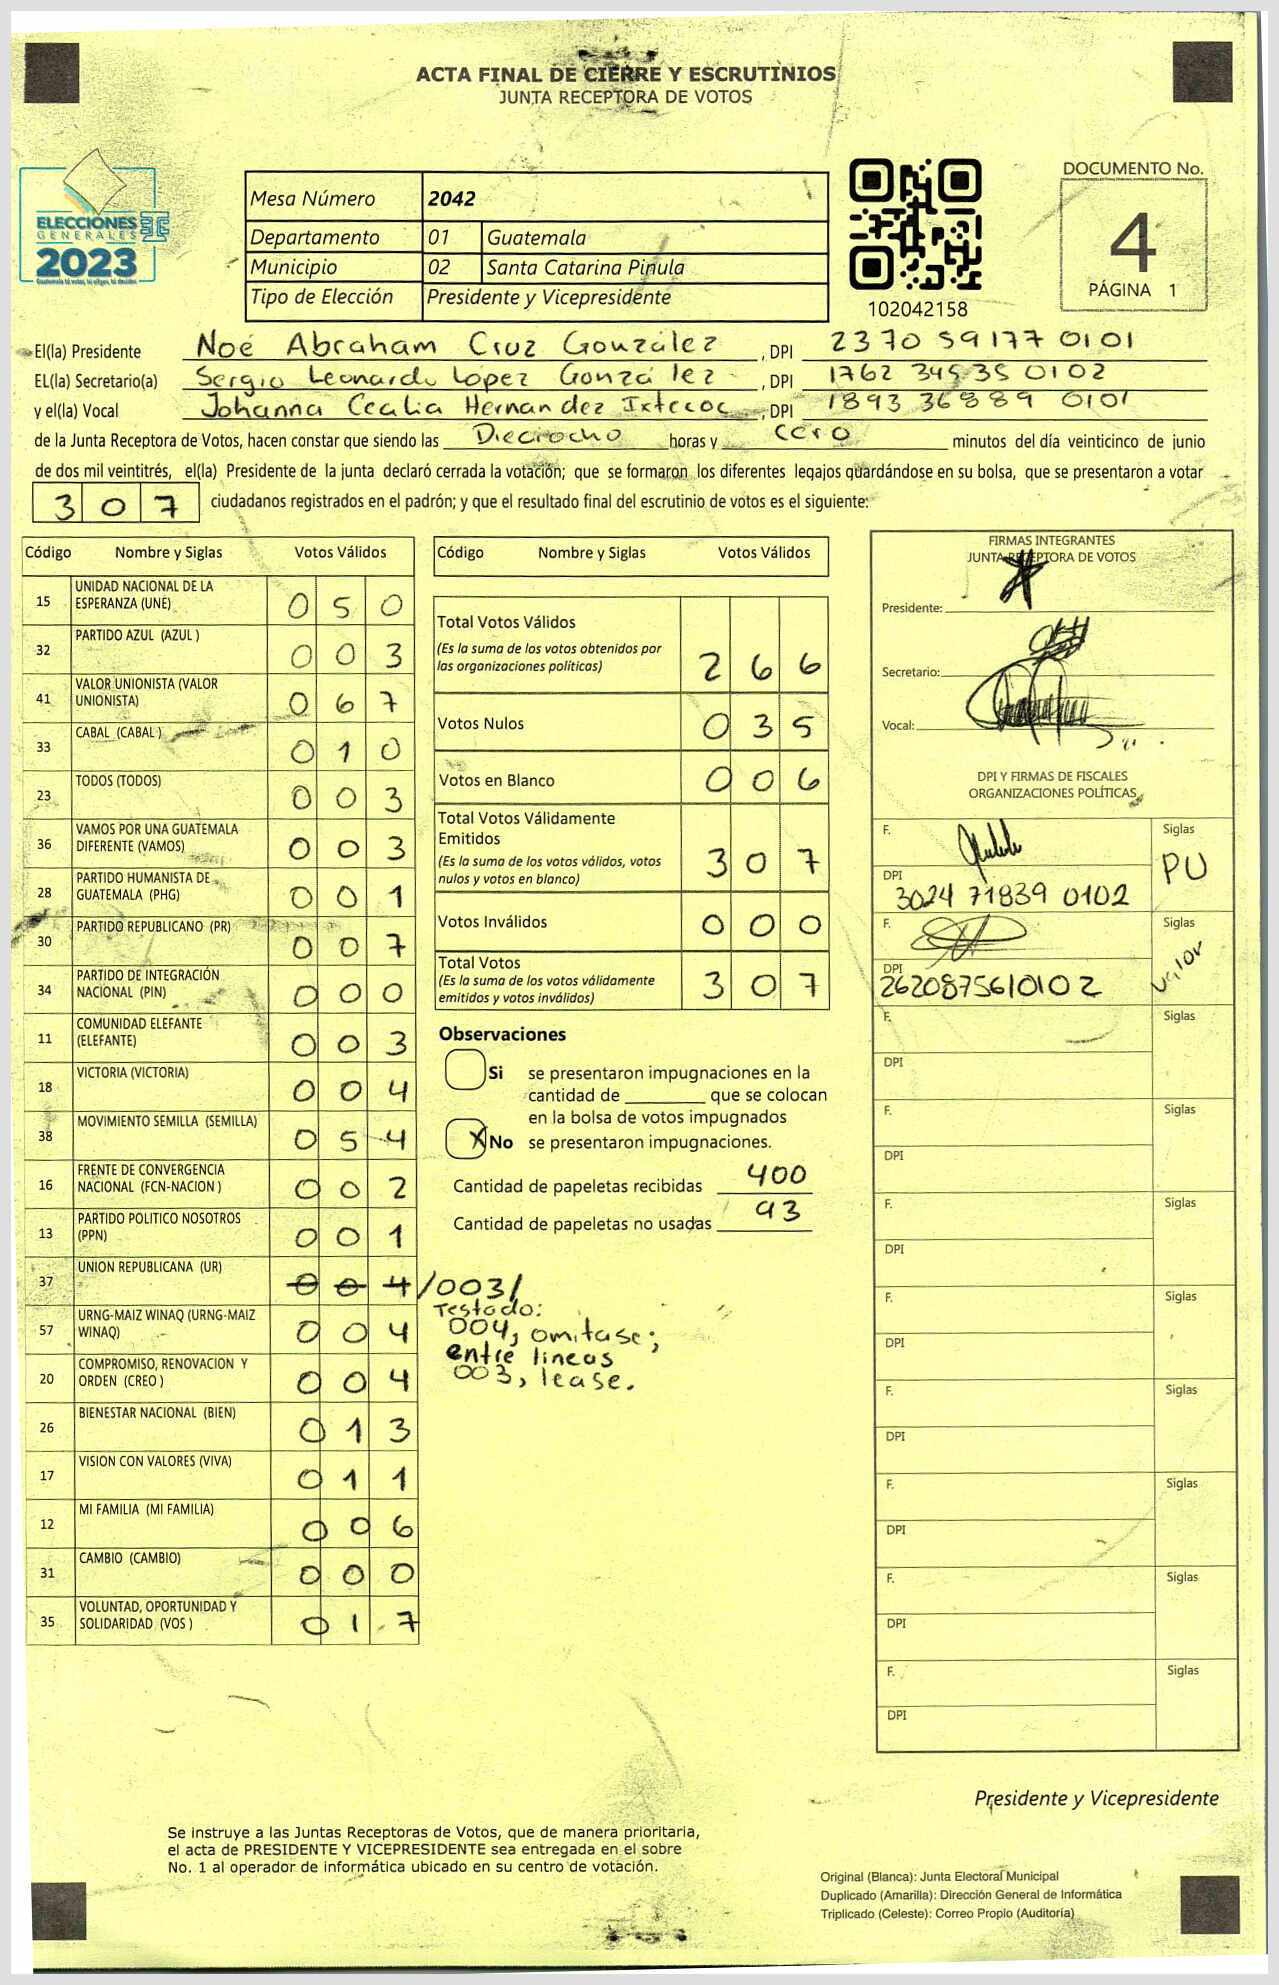 ACTA FINAL DE CIERRE Y ESCRUTINIOS
JUNTA RECEPTORA DE VOTOS
ELECCIONES
GENERALES
2023
Guatemala tú votas, tú eliges, tú decides
Mesa Número 2042
Departamento 01 Guatemala
Municipio 02 Santa Catarina Pinula
Tipo de Elección Presidente y Vicepresidente
102042158
DOCUMENTO No.
4
PÁGINA 1
El(la) Presidente Noé Abraham Cruz González , DPI 2370 59177 0101
EL(la) Secretario(a) Sergio Leonardo López González , DPI 1762 34535 0102
y el(la) Vocal Johanna Hernandez , DPI 1893 36889 0101
de la Junta Receptora de Votos, hacen constar que siendo las Dieciocho horas y cero minutos del día veinticinco de junio
de dos mil veintitrés, el(la) Presidente de la junta declaró cerrada la votación; que se formaron los diferentes legajos guardándose en su bolsa, que se presentaron a votar
307 ciudadanos registrados en el padrón; y que el resultado final del escrutinio de votos es el siguiente:
Código Nombre y Siglas Votos Válidos
15 UNIDAD NACIONAL DE LA ESPERANZA (UNE) 050
32 PARTIDO AZUL (AZUL ) 003
41 VALOR UNIONISTA (VALOR UNIONISTA) 067
33 CABAL (CABAL ) 010
23 TODOS (TODOS) 003
36 VAMOS POR UNA GUATEMALA DIFERENTE (VAMOS) 003
28 PARTIDO HUMANISTA DE GUATEMALA (PHG) 001
30 PARTIDO REPUBLICANO (PR) 007
34 PARTIDO DE INTEGRACIÓN NACIONAL (PIN) 000
11 COMUNIDAD ELEFANTE (ELEFANTE) 003
18 VICTORIA (VICTORIA) 004
38 MOVIMIENTO SEMILLA (SEMILLA) 054
16 FRENTE DE CONVERGENCIA NACIONAL (FCN-NACION ) 002
13 PARTIDO POLITICO NOSOTROS (PPN) 001
37 UNION REPUBLICANA (UR) 004 /003/
57 URNG-MAIZ WINAQ (URNG-MAIZ WINAQ) 004
20 COMPROMISO, RENOVACION Y ORDEN (CREO ) 004
26 BIENESTAR NACIONAL (BIEN) 013
17 VISION CON VALORES (VIVA) 011
12 MI FAMILIA (MI FAMILIA) 006
31 CAMBIO (CAMBIO) 000
35 VOLUNTAD, OPORTUNIDAD Y SOLIDARIDAD (VOS ) 017
Código Nombre y Siglas Votos Válidos
Total Votos Válidos
(Es la suma de los votos obtenidos por
las organizaciones políticas) 266
Votos Nulos 035
Votos en Blanco 006
Total Votos Válidamente
Emitidos
(Es la suma de los votos válidos, votos
nulos y votos en blanco) 307
Votos Inválidos 000
Total Votos
(Es la suma de los votos válidamente
emitidos y votos inválidos) 307
Observaciones
Si se presentaron impugnaciones en la
cantidad de ________ que se colocan
en la bolsa de votos impugnados
X No se presentaron impugnaciones.
Cantidad de papeletas recibidas 400
Cantidad de papeletas no usadas 93
Testado:
004, omitase;
entre lineas
003, lease.
FIRMAS INTEGRANTES
JUNTA RECEPTORA DE VOTOS
Presidente:
Secretario:
Vocal:
DPI Y FIRMAS DE FISCALES
ORGANIZACIONES POLÍTICAS
F. Siglas PU
DPI 3024 71839 0102
F. Siglas Valor
DPI 2620875610102
F. Siglas
DPI
F. Siglas
DPI
F. Siglas
DPI
F. Siglas
DPI
F. Siglas
DPI
F. Siglas
DPI
F. Siglas
DPI
F. Siglas
DPI
Presidente y Vicepresidente
Se instruye a las Juntas Receptoras de Votos, que de manera prioritaria,
el acta de PRESIDENTE Y VICEPRESIDENTE sea entregada en el sobre
No. 1 al operador de informática ubicado en su centro de votación.
Original (Blanca): Junta Electoral Municipal
Duplicado (Amarilla): Dirección General de Informática
Triplicado (Celeste): Correo Propio (Auditoría)